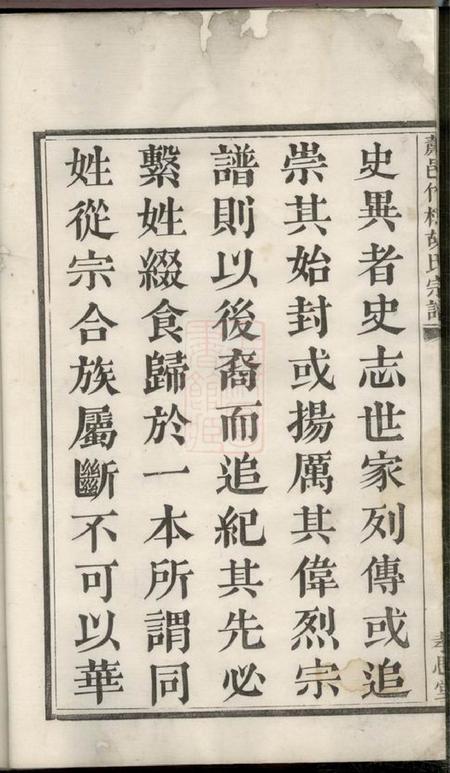 史異者史志世家列傳或追
崇其始封或揚厲其偉烈宗
譜則以後裔而追紀其先必
繫姓綴食歸於一本所謂同
姓從宗合族屬斷不可以華